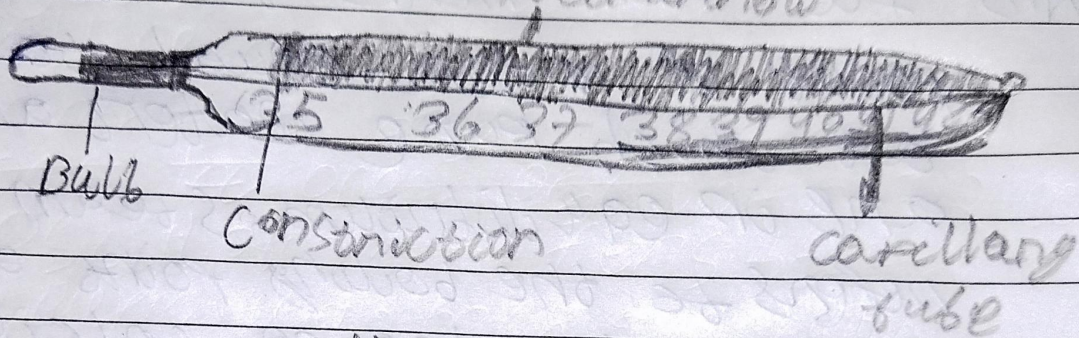 35 36 37 38 39 40 41 42
Bulb
Constriction
Carillary
tube